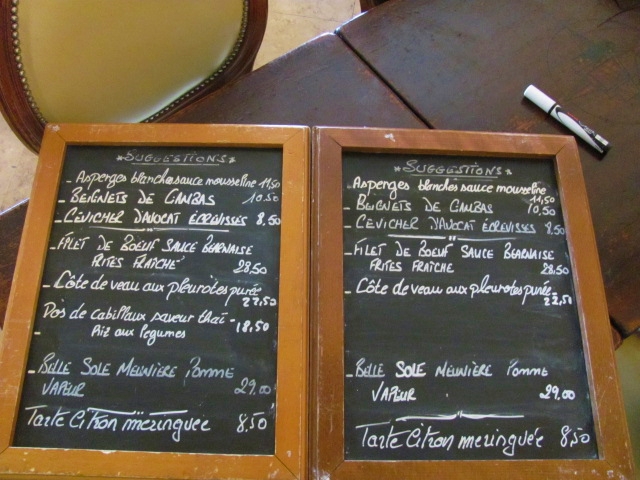 *SUGGESTIONS*
- Asperges blanches sauce mousseline 11,50
- BEIGNETS DE GAMBAS 10.50
- CEVICHER D'AVOCAT ECREVISSES 8,50
- FILET DE BOEUF SAUCE BEARNAISE
FRITES FRAÎCHE 28,50
- Côte de veau aux pleurotes purée
22,50
- Dos de cabillaux saveur thaï - 18,50
Riz aux legumes
- BELLE SOLE MEUNIÈRE POMME
VAPEUR 29,00
Tarte Citron meringuée 8,50
*SUGGESTIONS*
Asperges blanches sauce mousseline
11,50
- BEIGNETS DE GAMBAS 10,50
- CEVICHER D'AVOCAT ECREVISSES 8,50
- FILET DE BOEUF SAUCE BEARNAISE
FRITES FRAÎCHE 28,50
- Côte de veau aux pleurotes purée
22,50
- BELLE SOLE MEUNIÈRE POMME
VAPEUR 29,00
Tarte Citron meringuée 8,50